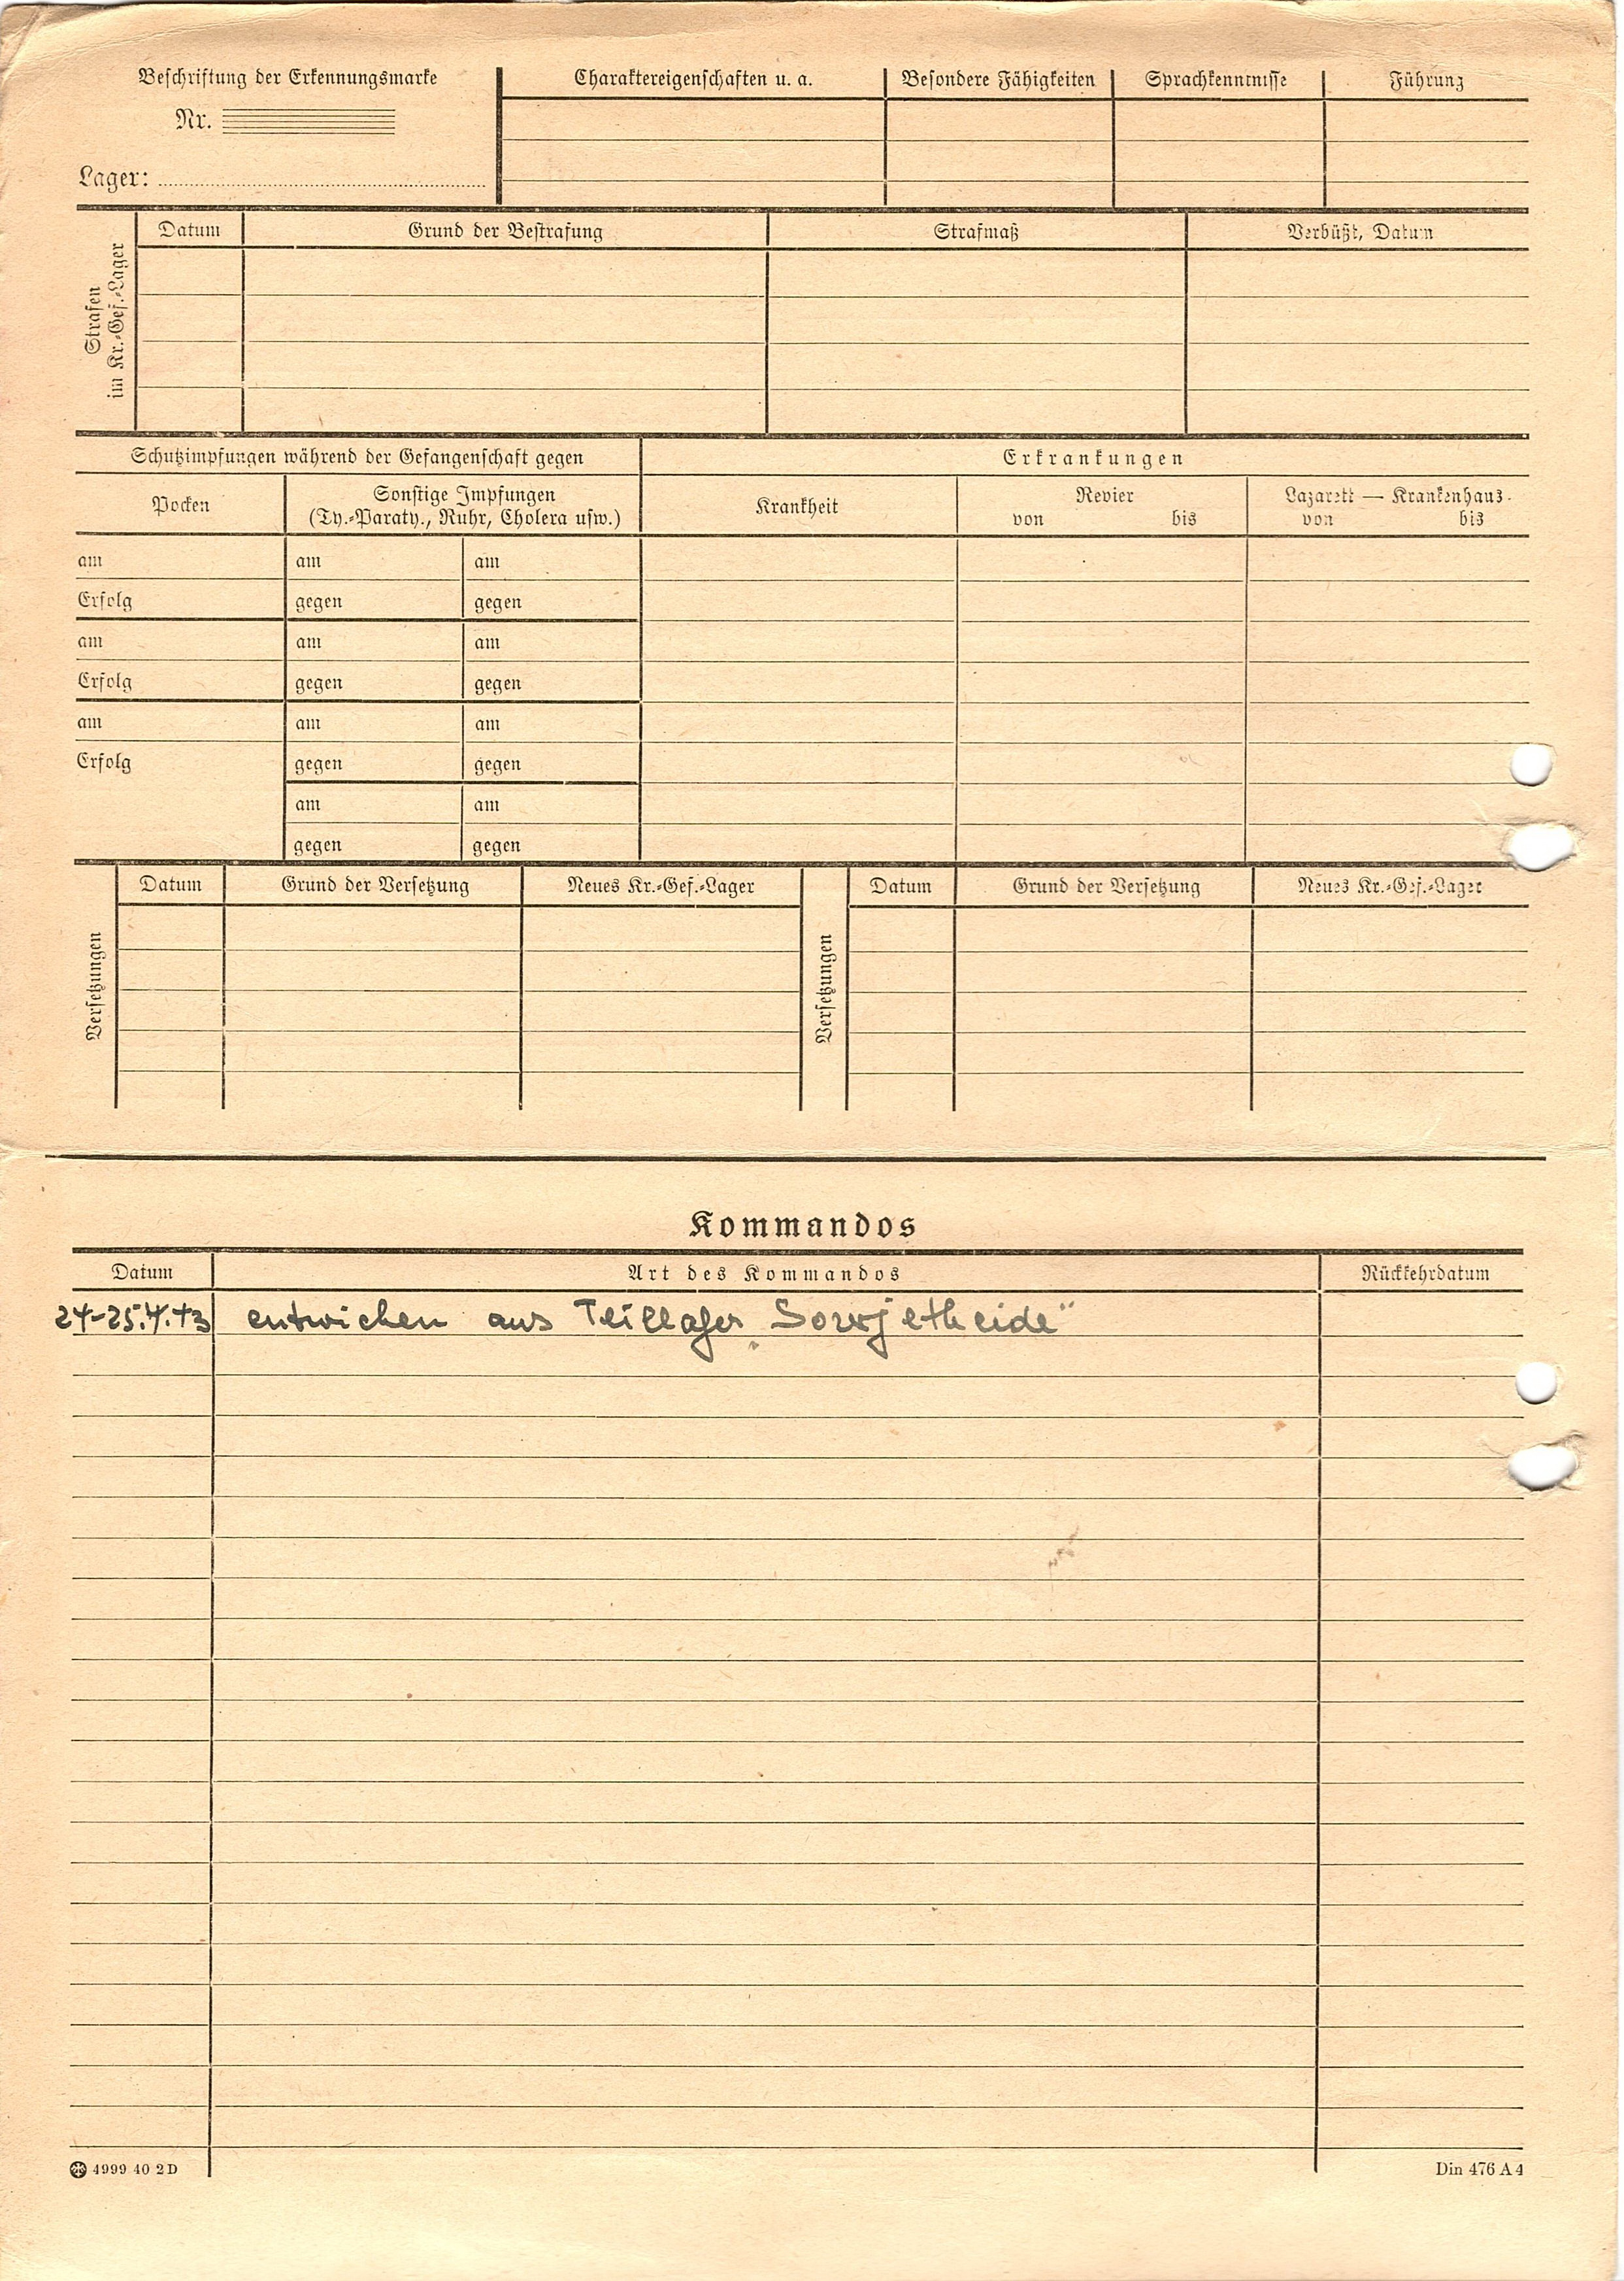 Beschriftung der Erkennungsmarke
Nr.
Lager:
Charaktereigenschaften u. a. Besondere Fähigkeiten Sprachkenntnisse Führung
Strafen
im Kr.-Gef.-Lager
Datum Grund der Bestrafung Strafmaß Verbüßt, Datum
Schutzimpfungen während der Gefangenschaft gegen
Erkrankungen
Pocken
Sonstige Impfungen
(Ty.-Paraty., Ruhr, Cholera usw.)
Krankheit
Revier
von bis
Lazarett — Krankenhaus
von bis
am am am
Erfolg gegen gegen
am am am
Erfolg gegen gegen
am am am
Erfolg gegen gegen
am am
gegen gegen
Versetzungen
Datum Grund der Versetzung Neues Kr.-Gef.-Lager
Versetzungen
Datum Grund der Versetzung Neues Kr.-Gef.-Lager
Kommandos
Datum Art des Kommandos Rückkehrdatum
24-25.4.43 entwichen aus Teillager „Sowjetheide“
4999 40 2 D
Din 476 A 4